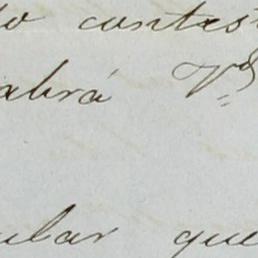 to contest
abrá Vd
ular que